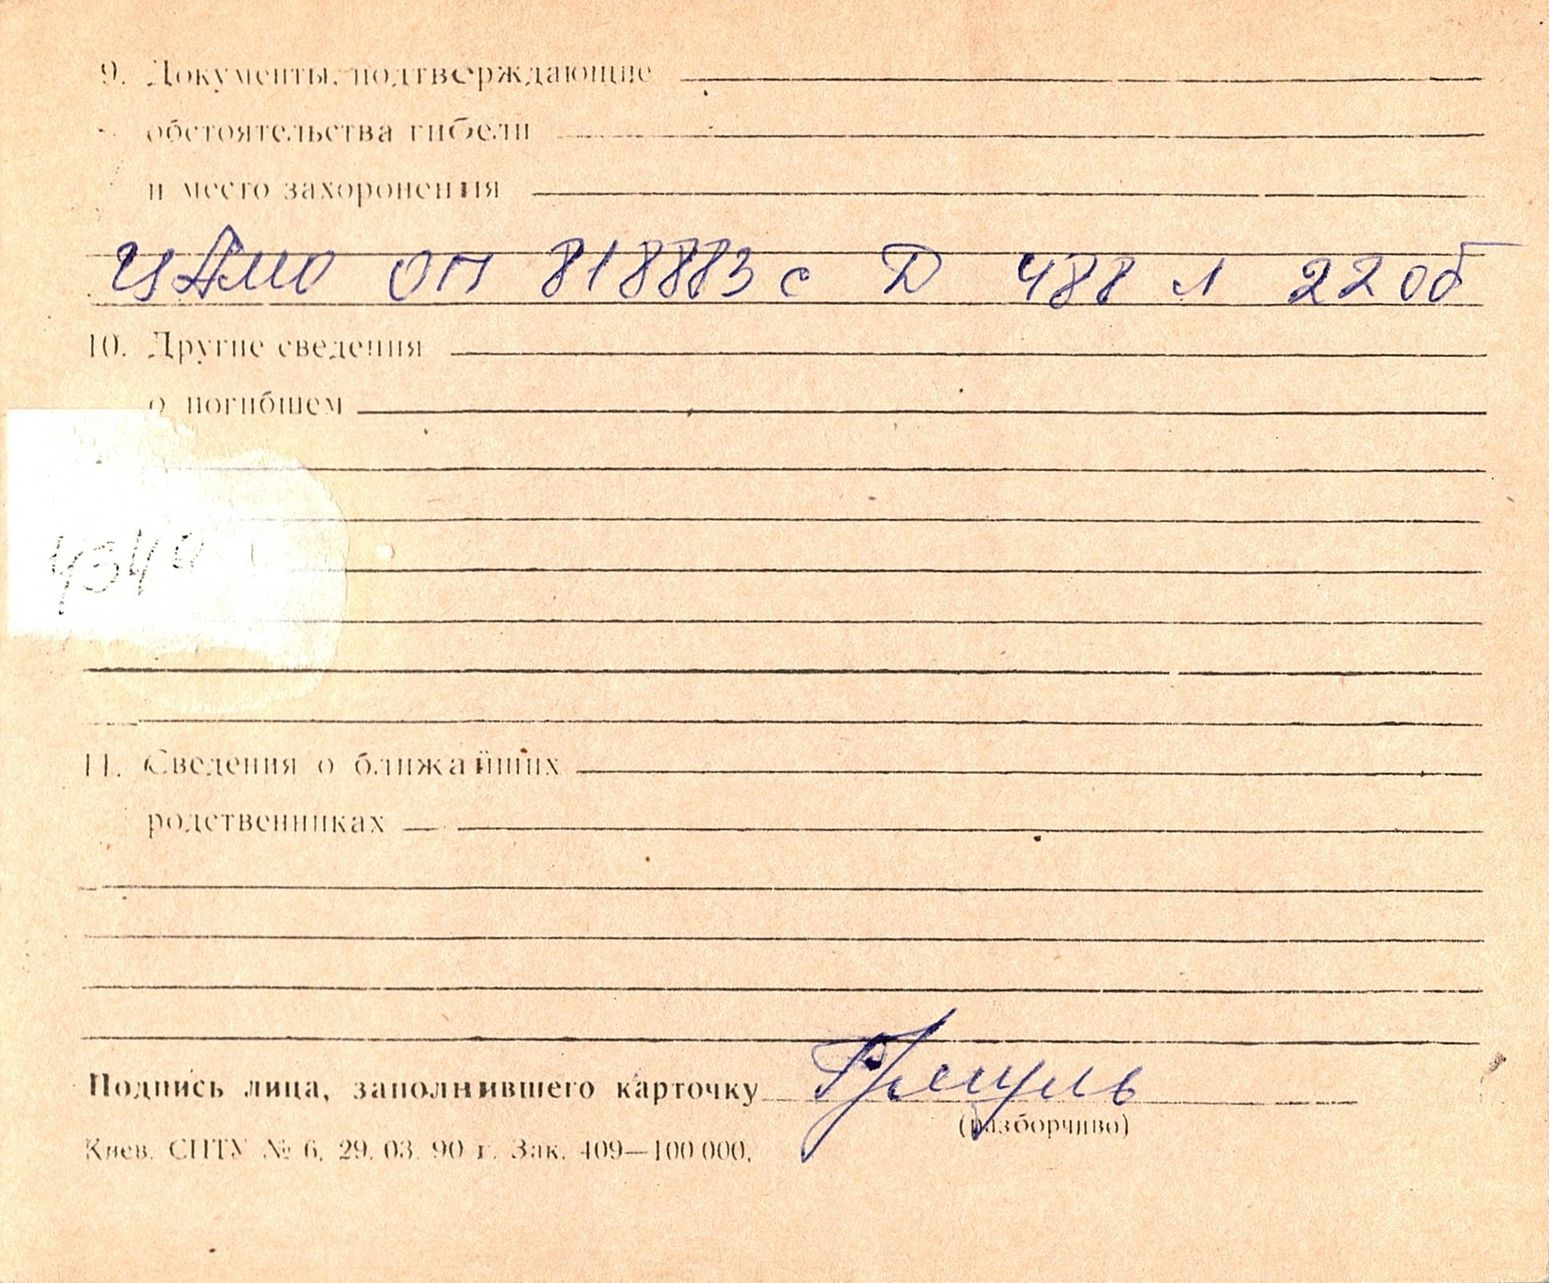 9. Документы, подтверждающие
обстоятельства гибели
и место захоронения
ЦАМО ОП 818883с Д 488 л 22об
10. Другие сведения
о погибшем
11. Сведения о ближайших
родственниках
Подпись лица, заполнившего карточку
(разборчиво)
Киев. СПТУ № 6, 29. 03. 90 г. Зак. 409—100 000.